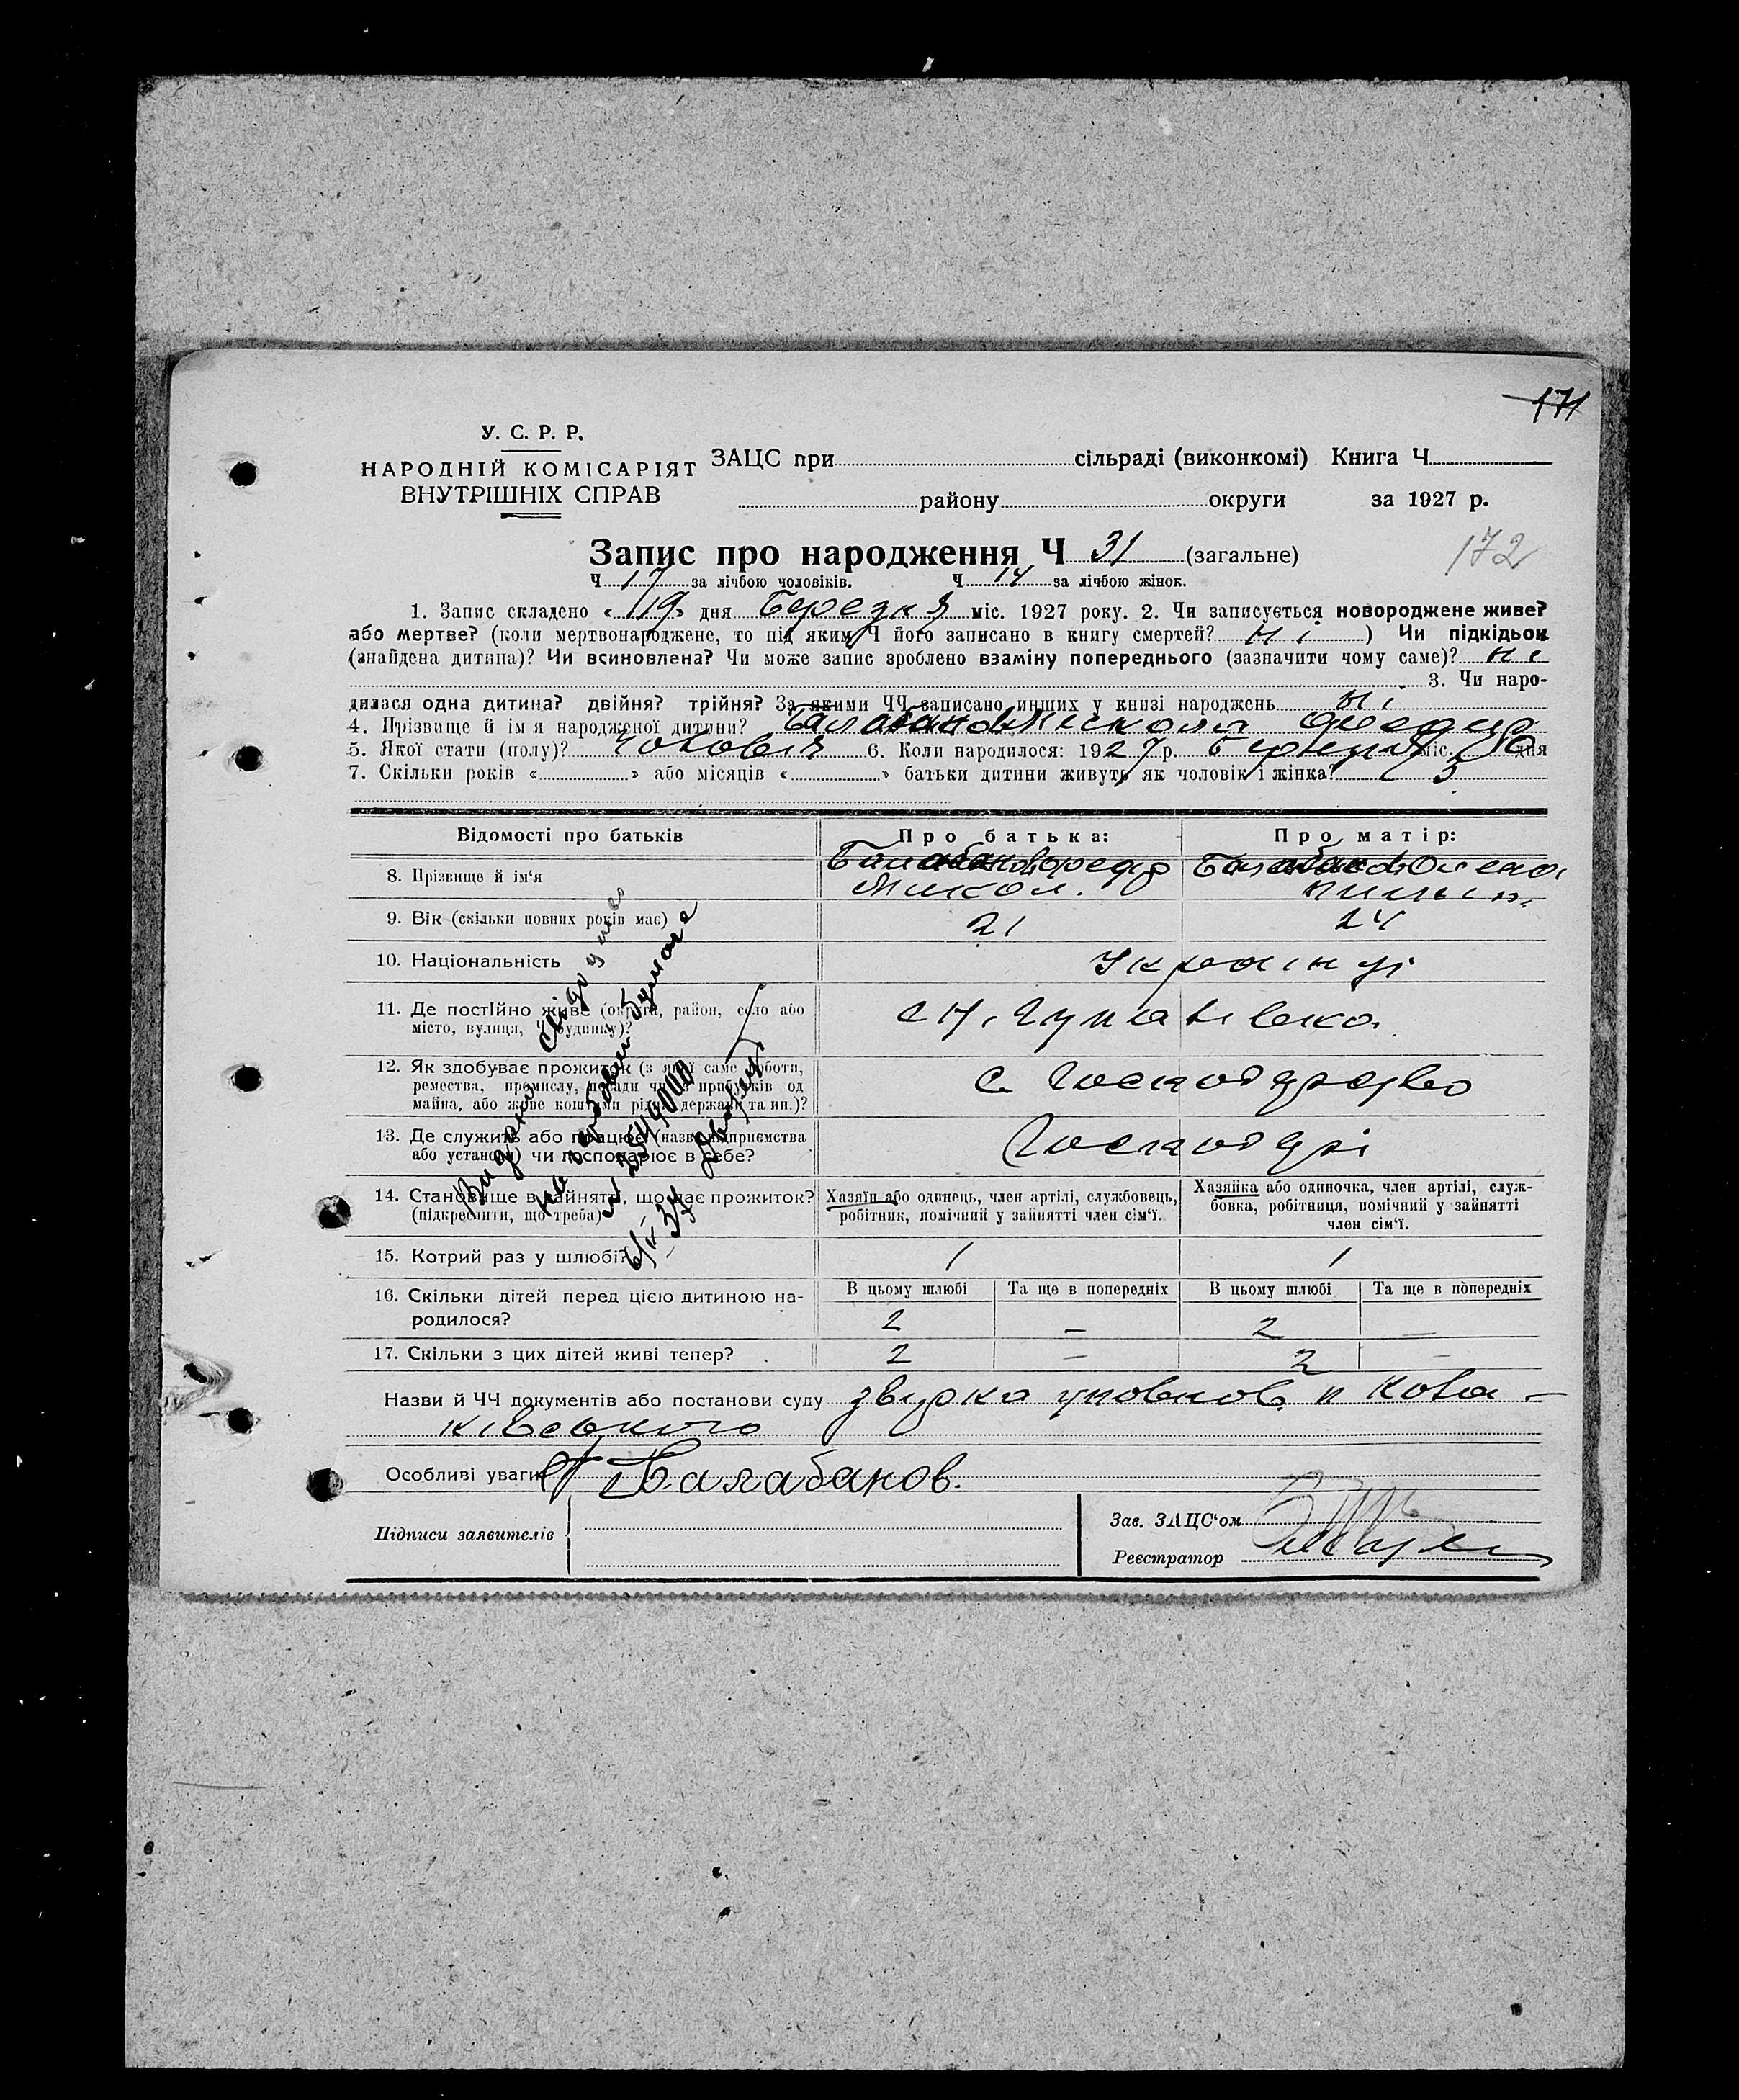 171
У. С. Р. Р.
НАРОДНІЙ КОМІСАРІЯТ
ВНУТРІШНІХ СПРАВ
ЗАЦС при сільраді (виконкомі) Книга Ч
району округи за 1927 р.
Запис про народження Ч 31 (загальне)
172
Ч 17 за лічбою чоловіків. Ч 14 за лічбою жінок.
1. Запис складено « 19 » дня Березня міс. 1927 року. 2. Чи записується новороджене живе?
або мертве? (коли мертвонароджене, то під яким Ч його записано в книгу смертей? ні ) Чи підкідьок
(знайдена дитина)? Чи всиновлена? Чи може запис зроблено взаміну попереднього (зазначити чому саме)? ні
3. Чи наро-
дилася одна дитина? двійня? трійня? За якими ЧЧ записано инших у книзі народжень ні
4. Прізвище й ім я народженої дитини? Балабанов Микола
5. Якої стати (полу)? 6. Коли народилося: 1927 р. Березня міс. дня
7. Скільки років « » або місяців « » батьки дитини живуть як чоловік і жінка? 3
Відомості про батьків
Про батька:
Про матір:
8. Прізвище й ім'я
Балабанов
Микол.
Балабанов Олена
9. Вік (скільки повних років має)
21
24
10. Національність
Українці
11. Де постійно живе (округа, район, село або
місто, вулиця, Ч будинку)?
12. Як здобуває прожиток (з якої саме роботи,
ремества, промислу, посади чи з прибутків од
майна, або живе коштами рідні, держави та ин.)?
с. Господарство
13. Де служить або працює (назва підприємства
або установи) чи господарює в себе?
Господарі
14. Становище в зайнятті, що дає прожиток?
(підкреслити, що треба)
Хазяїн або одинець, член артілі, службовець,
робітник, помічний у зайнятті член сім'ї.
Хазяйка або одиночка, член артілі, служ-
бовка, робітниця, помічний у зайнятті
член сім'ї.
15. Котрий раз у шлюбі?
1
1
16. Скільки дітей перед цією дитиною на-
родилося?
В цьому шлюбі
Та ще в попередніх
В цьому шлюбі
Та ще в попередніх
2
–
2
–
17. Скільки з цих дітей живі тепер?
2
–
2
–
Назви й ЧЧ документів або постанови суду
Особливі уваги
Балабанов.
Підписи заявителів
Зав. ЗАЦС'ом
Реєстратор